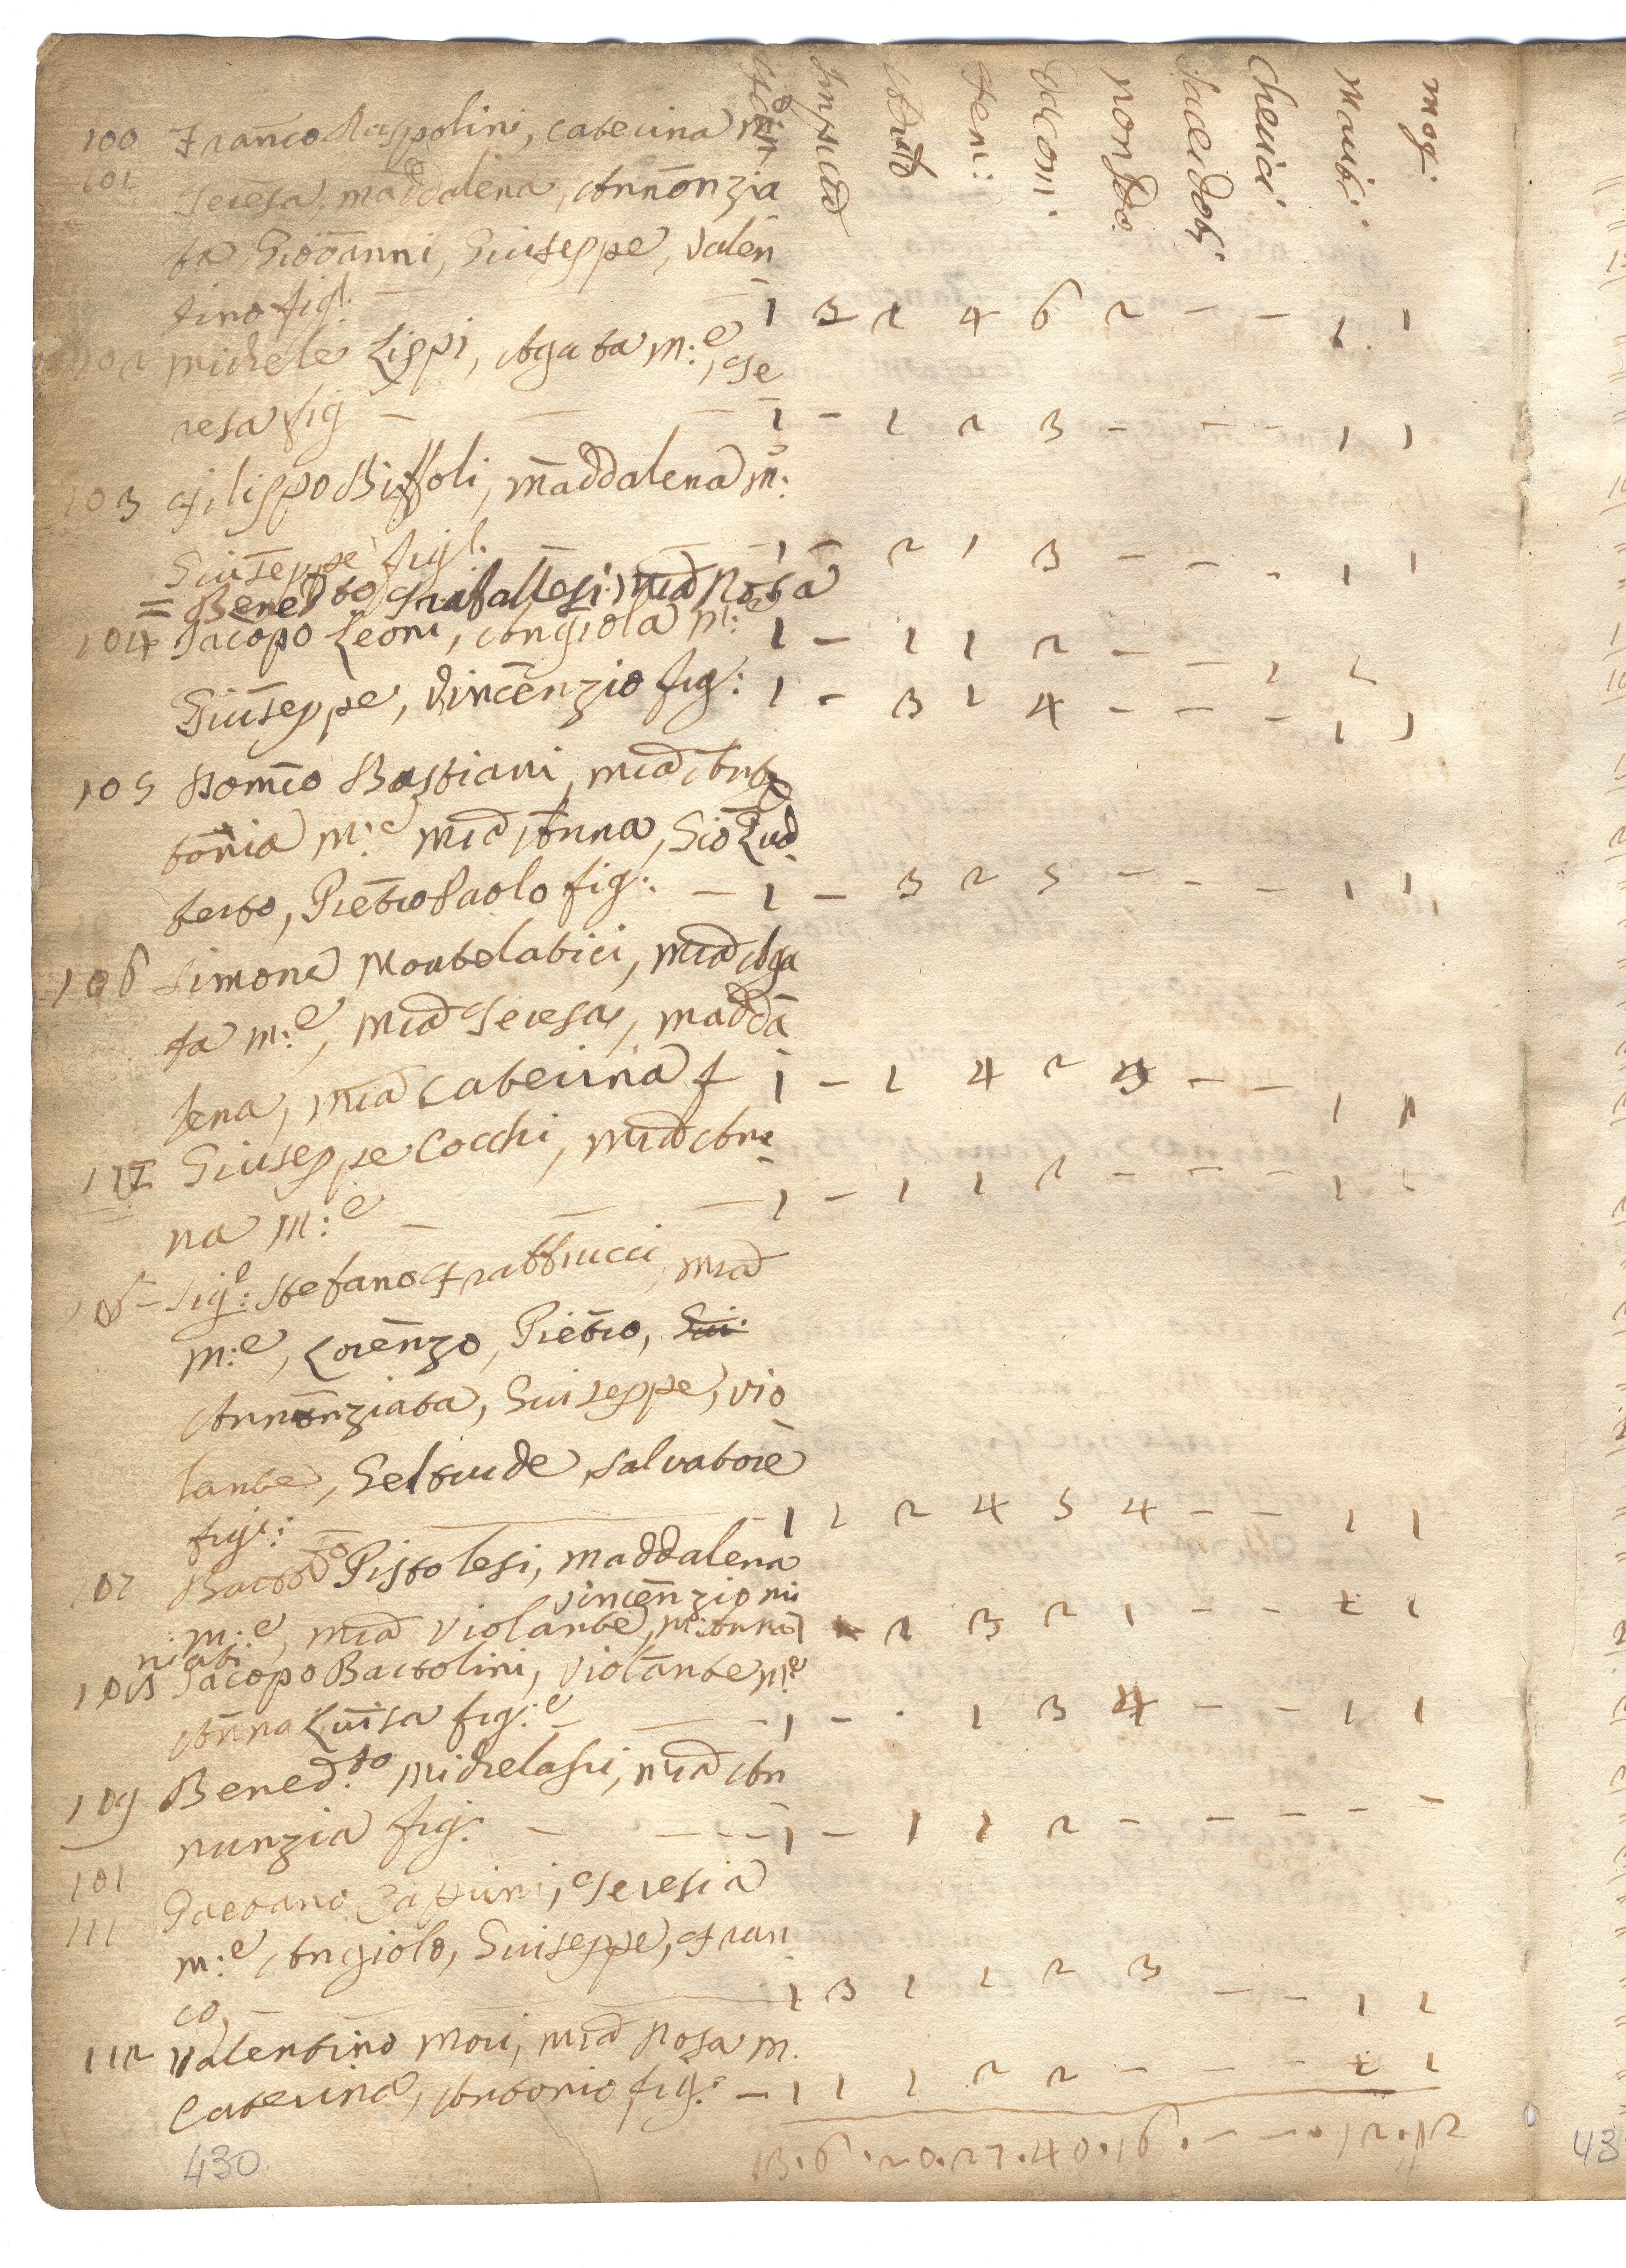 Impub
Adul
Fem:
Dàcom:
Non Do:
Sacerdoti
Cherici
Mariti:
mog:
100 Franco Raspolini, Caterina m:
101 Teresa, maddalena, Annonzia
ta Giovanni, Giuseppe, Valen
tino figl: — 1 3 1 4 6 2 — — 1 1
102 Michele Lippi, Agata m:e, Te
resa fig — — — 1 — 1 2 3 — — — 1 1
103 Filippo Biffoli, maddalena m:
Giuseppe figl. — — 1 — 2 1 3 — — . 1 1
= Bened.to Trafallesi: Mia Rosa
1 — 1 1 2 — — 1 1
104 Jacopo Leoni, Angiola m:e
Giuseppe, Vincenzio fig: 1 — 3 1 4 — — — 1 1
105 Domco Bastiani, Mia Anto
tonia m:e Mia Anna, Gio Lud
berto, Pietro Paolo fig: — 1 — 3 2 5 — — — 1 1
106 Simone Montelatici, Mia Aga
ta m:e, Mia Teresa, madda
lena, Mia Caterina f 1 — 1 4 2 — — 1 1
Giuseppe Cocchi, Mia An
na m:e — — — 1 — 1 1 2 — — — 1 1
Sig:e Stefano Frabbrucci, Mia
m:e, Lorenzo, Pietro, Giu:
Annonziata, Giuseppe, Vio
lante, Geltrude, Salvatore
figl: — 1 1 2 4 5 4 — — 1 1
107 Bartoo Pistolesi, maddalena
Vincenzio mi
m:e, Mia Violante, M: Anna 1 2 3 2 1 — — 1 1
niati
108 Jacopo Bartolini, Violante m:e
Anna Luisa fig:e — — 1 — . 1 3 4 — — 1 1
109 Bened.to Michelassi, Mia An
nunzia fig: — — 1 — 1 1 2 — — — — —
101
111 Gaetano Cappini, Teresia
m:e Angiolo, Giuseppe, Fran
co, — 1 3 1 1 2 3 — — 1 1
112 Valentino Mori, Mia Rosa m.
Caterina, Antonio fig: — 1 1 1 2 2 — — — 1 1
13 . 6 . 20 . 27 . 40 . 16 . — — . 12 . 12
430
43